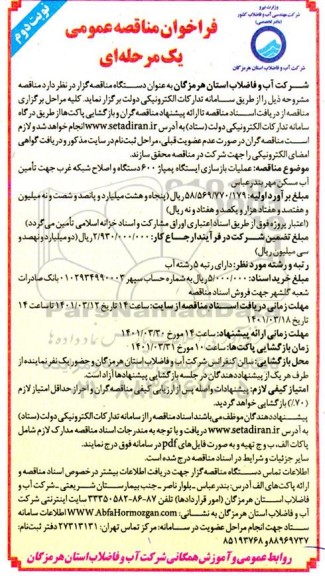 نوبت دوم
وزارت نیرو
شرکت مهندسی آب و فاضلاب کشور
(مادر تخصصی)
شرکت آب و فاضلاب استان هرمزگان
فراخوان مناقصه عمومی
یک مرحله‌ای
شرکت آب و فاضلاب استان هرمزگان به عنوان دستگاه مناقصه گزار در نظر دارد مناقصه
مشروحه ذیل را از طریق سامانه تدارکات الکترونیکی دولت برگزار نماید. کلیه مراحل برگزاری
مناقصه از دریافت اسناد مناقصه تا ارائه پیشنهاد مناقصه گران و بازگشایی پاکت‌ها از طریق درگاه
سامانه تدارکات الکترونیکی دولت (ستاد) به آدرس www.setadiran.ir انجام خواهد شد و لازم
است مناقصه گران در صورت عدم عضویت قبلی، مراحل ثبت نام در سایت مذکور و دریافت گواهی
امضای الکترونیکی را جهت شرکت در مناقصه محقق سازند.
موضوع مناقصه: عملیات بازسازی ایستگاه پمپاژ ۶۰۰ دستگاه و اصلاح شبکه غرب جهت تأمین
آب مسکن مهر بندرعباس
مبلغ برآورد اولیه: ۵۸/۵۶۹/۷۷۰/۱۷۹ ریال (پنجاه و هشت میلیارد و پانصد و شصت و نه میلیون
و هفتصد و هفتاد هزار و یکصد و هفتاد و نه ریال)
(اعتبار پروژه فوق از طریق اسناد اعتباری اوراق مشارکت و اسناد خزانه اسلامی تأمین می‌گردد)
مبلغ تضمین شرکت در فرآیند ارجاع کار: ۲/۹۳۰/۰۰۰/۰۰۰ ریال (دو میلیارد و نهصد و
سی میلیون ریال)
رتبه و رشته مورد نظر: دارای رتبه ۵ رشته آب
مبلغ خرید اسناد: ۵/۰۰۰/۰۰۰ ریال به شماره حساب سپهر ۰۱۰۲۹۳۴۹۹۰۰۰۳ بانک صادرات
شعبه گلشهر جهت فروش اسناد مناقصه
مهلت زمانی دریافت اسناد مناقصه از سایت: ساعت ۱۴ تاریخ ۱۴۰۱/۰۳/۱۲ تا ساعت ۱۴
تاریخ ۱۴۰۱/۰۳/۱۸
مهلت زمانی ارائه پیشنهاد: ساعت ۱۴ مورخ ۱۴۰۱/۰۳/۳۰
زمان بازگشایی پاکت‌ها: ساعت ۱۰ مورخ ۱۴۰۱/۰۳/۳۱
محل بازگشایی: سالن کنفرانس شرکت آب و فاضلاب استان هرمزگان و حضور یک نفر نماینده از
طرف هر یک از پیشنهاد دهندگان در جلسه بازگشایی پیشنهادها آزاد است.
امتیاز کیفی لازم: پیشنهادات واصله پس از ارزیابی کیفی مناقصه گران و احراز حداقل امتیاز لازم
(۷۰٪) بازگشایی خواهد گردید.
پیشنهاد دهندگان موظف می‌باشند اسناد مناقصه را از سامانه تدارکات الکترونیکی دولت (ستاد)
به آدرس www.setadiran.ir دریافت و با توجه به مندرجات اسناد مناقصه مدارک لازم شامل
پاکات الف، ب و ج تهیه و به صورت فایل‌های pdf در سامانه فوق درج نمایند.
سایر جزئیات و شرایط در اسناد مناقصه درج شده است.
اطلاعات تماس دستگاه مناقصه گزار جهت دریافت اطلاعات بیشتر در خصوص اسناد مناقصه و
ارائه پاکت‌های الف: آدرس: بندرعباس ـ بلوار ناصر ـ جنب بیمارستان شریعتی ـ شرکت آب و
فاضلاب استان هرمزگان (امور قراردادها) تلفن ۸۷-۸۶-۳۳۳۵۰۵۸۲ سایت اینترنتی شرکت
آب و فاضلاب استان هرمزگان به نشانی: www.AbfaHormozgan.com اطلاعات سامانه
ستاد جهت انجام مراحل عضویت در سامانه: مرکز تماس تهران: ۲۷۳۱۳۱۳۱ دفتر ثبت نام:
۸۸۹۶۹۷۳۷ و ۸۵۱۹۳۷۶۸
روابط عمومی و آموزش همگانی شرکت آب و فاضلاب استان هرمزگان